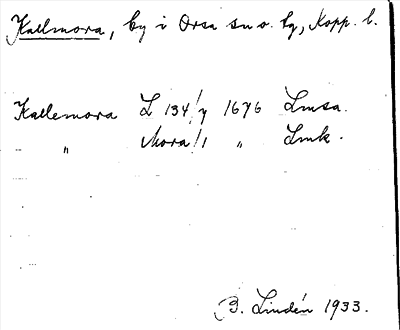 Kallmora, by i Orsa sn o. hg, Kopp. l.
Kallemora L 134/y 1676 Lmsa.
" Mora/1 " Lmk.
B. Lindén 1933.